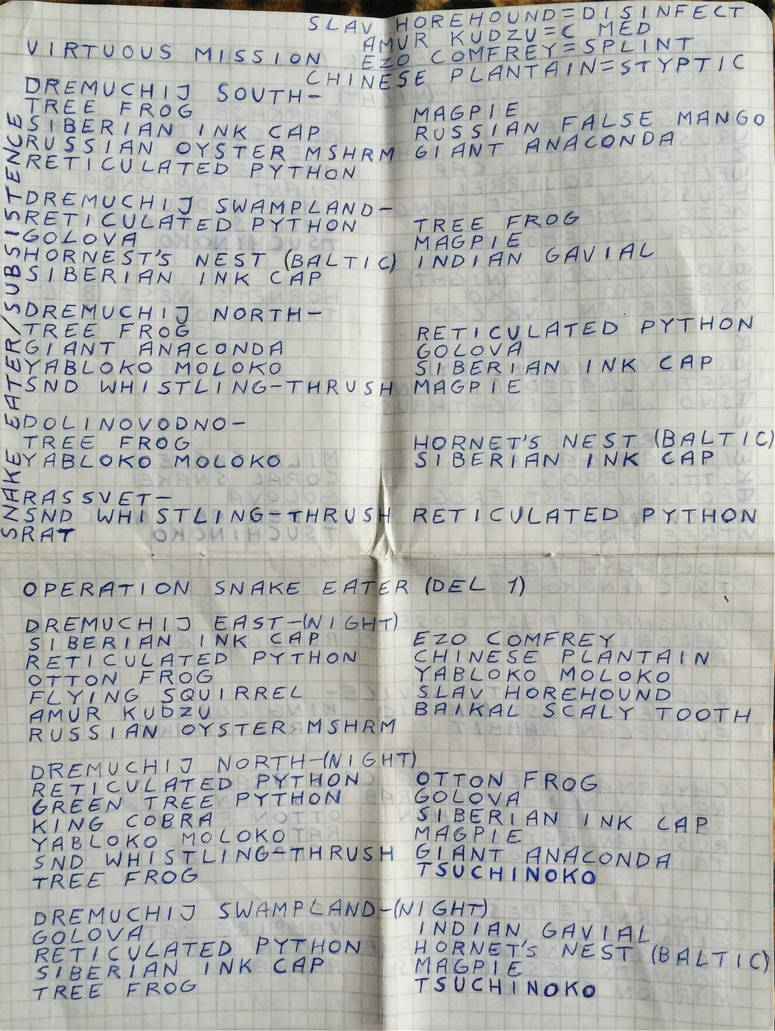 SLAV HOREHOUND=DISINFECT
AMUR KUDZU=C MED
VIRTUOUS MISSION EZO COMFREY=SPLINT
CHINESE PLANTAIN=STYPTIC
SNAKE EATER/SUBSISTENCE
DREMUCHIJ SOUTH-
TREE FROG MAGPIE
SIBERIAN INK CAP RUSSIAN FALSE MANGO
RUSSIAN OYSTER MSHRM GIANT ANACONDA
RETICULATED PYTHON
DREMUCHIJ SWAMPLAND-
RETICULATED PYTHON TREE FROG
GOLOVA MAGPIE
HORNEST'S NEST (BALTIC) INDIAN GAVIAL
SIBERIAN INK CAP
DREMUCHIJ NORTH-
TREE FROG RETICULATED PYTHON
GIANT ANACONDA GOLOVA
YABLOKO MOLOKO SIBERIAN INK CAP
SND WHISTLING-THRUSH MAGPIE
DOLINOVODNO-
TREE FROG HORNET'S NEST (BALTIC)
YABLOKO MOLOKO SIBERIAN INK CAP
RASSVET-
SND WHISTLING-THRUSH RETICULATED PYTHON
RAT
OPERATION SNAKE EATER (DEL 1)
DREMUCHIJ EAST-(NIGHT)
SIBERIAN INK CAP EZO COMFREY
RETICULATED PYTHON CHINESE PLANTAIN
OTTON FROG YABLOKO MOLOKO
FLYING SQUIRREL SLAV HOREHOUND
AMUR KUDZU BAIKAL SCALY TOOTH
RUSSIAN OYSTER MSHRM
DREMUCHIJ NORTH-(NIGHT)
RETICULATED PYTHON OTTON FROG
GREEN TREE PYTHON GOLOVA
KING COBRA SIBERIAN INK CAP
YABLOKO MOLOKO MAGPIE
SND WHISTLING-THRUSH GIANT ANACONDA
TREE FROG TSUCHINOKO
DREMUCHIJ SWAMPLAND-(NIGHT)
GOLOVA INDIAN GAVIAL
RETICULATED PYTHON HORNET'S NEST (BALTIC)
SIBERIAN INK CAP MAGPIE
TREE FROG TSUCHINOKO